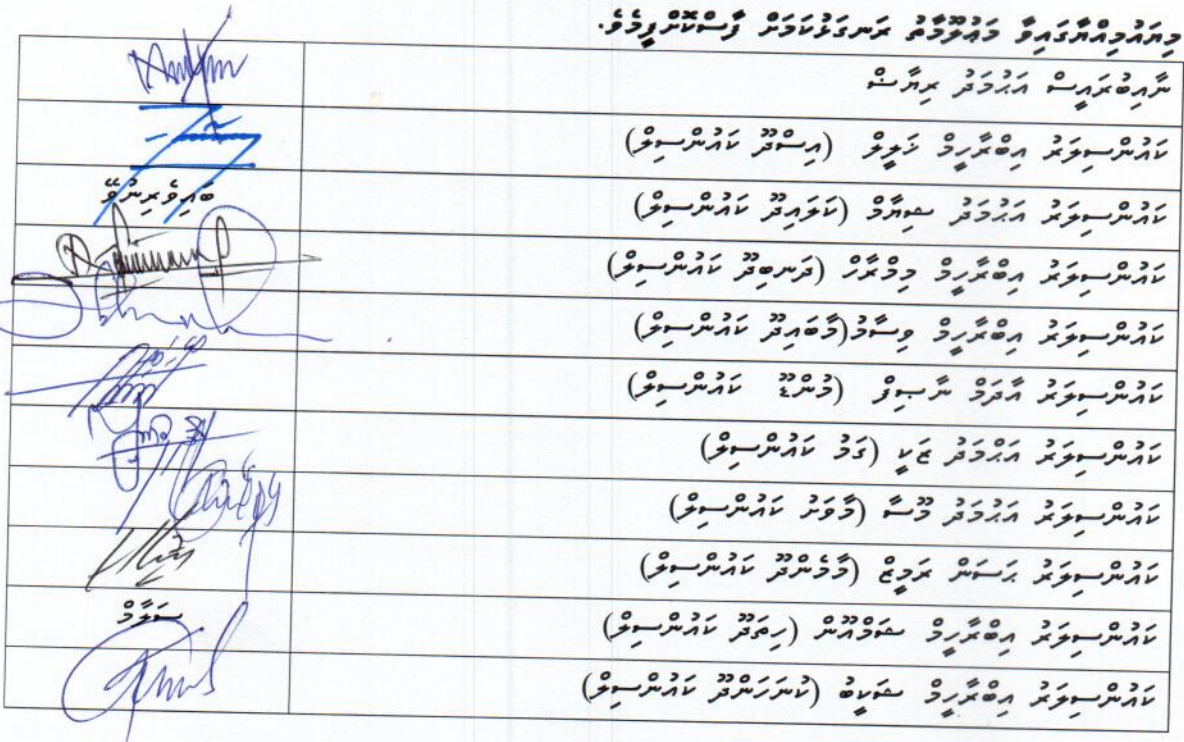 މިޔައުމިއްޔާގައިވާ މަޢުލޫމާތު ރަނގަޅުކަމަށް ފާސްކޮށްފީމެވެ.
ނާއިބުރައީސް އަޙުމަދު ރިޔާޟް
ކައުންސިލަރު އިބްރާހީމް ޚަލީލް (އިސްދޫ ކައުންސިލް)
ކައުންސިލަރު އަޙުމަދު ޝިޔާމް (ކަލައިދޫ ކައުންސިލް) ބައިވެރިނުވޭ
ކައުންސިލަރު އިބްރާހީމް މިމްރާހް (ދަނބިދޫ ކައުންސިލް)
ކައުންސިލަރު އިބްރާހީމް ވިސާމު(މާބައިދޫ ކައުންސިލް)
ކައުންސިލަރު އާދަމް ނާޞިފް (މުންޑޫ ކައުންސިލް)
ކައުންސިލަރު އަޙްމަދު ޒަކީ (ގަމު ކައުންސިލް)
ކައުންސިލަރު އަޙުމަދު މޫސާ (މާވަށު ކައުންސިލް)
ކައުންސިލަރު ޙަސަން ރަމީޒް (މާމެންދޫ ކައުންސިލް)
ކައުންސިލަރު އިބްރާހީމް ޝަމްއޫން (ހިތަދޫ ކައުންސިލް) ސަލާމް
ކައުންސިލަރު އިބްރާހީމް ޝަކީބު (ކުނަހަންދޫ ކައުންސިލް)